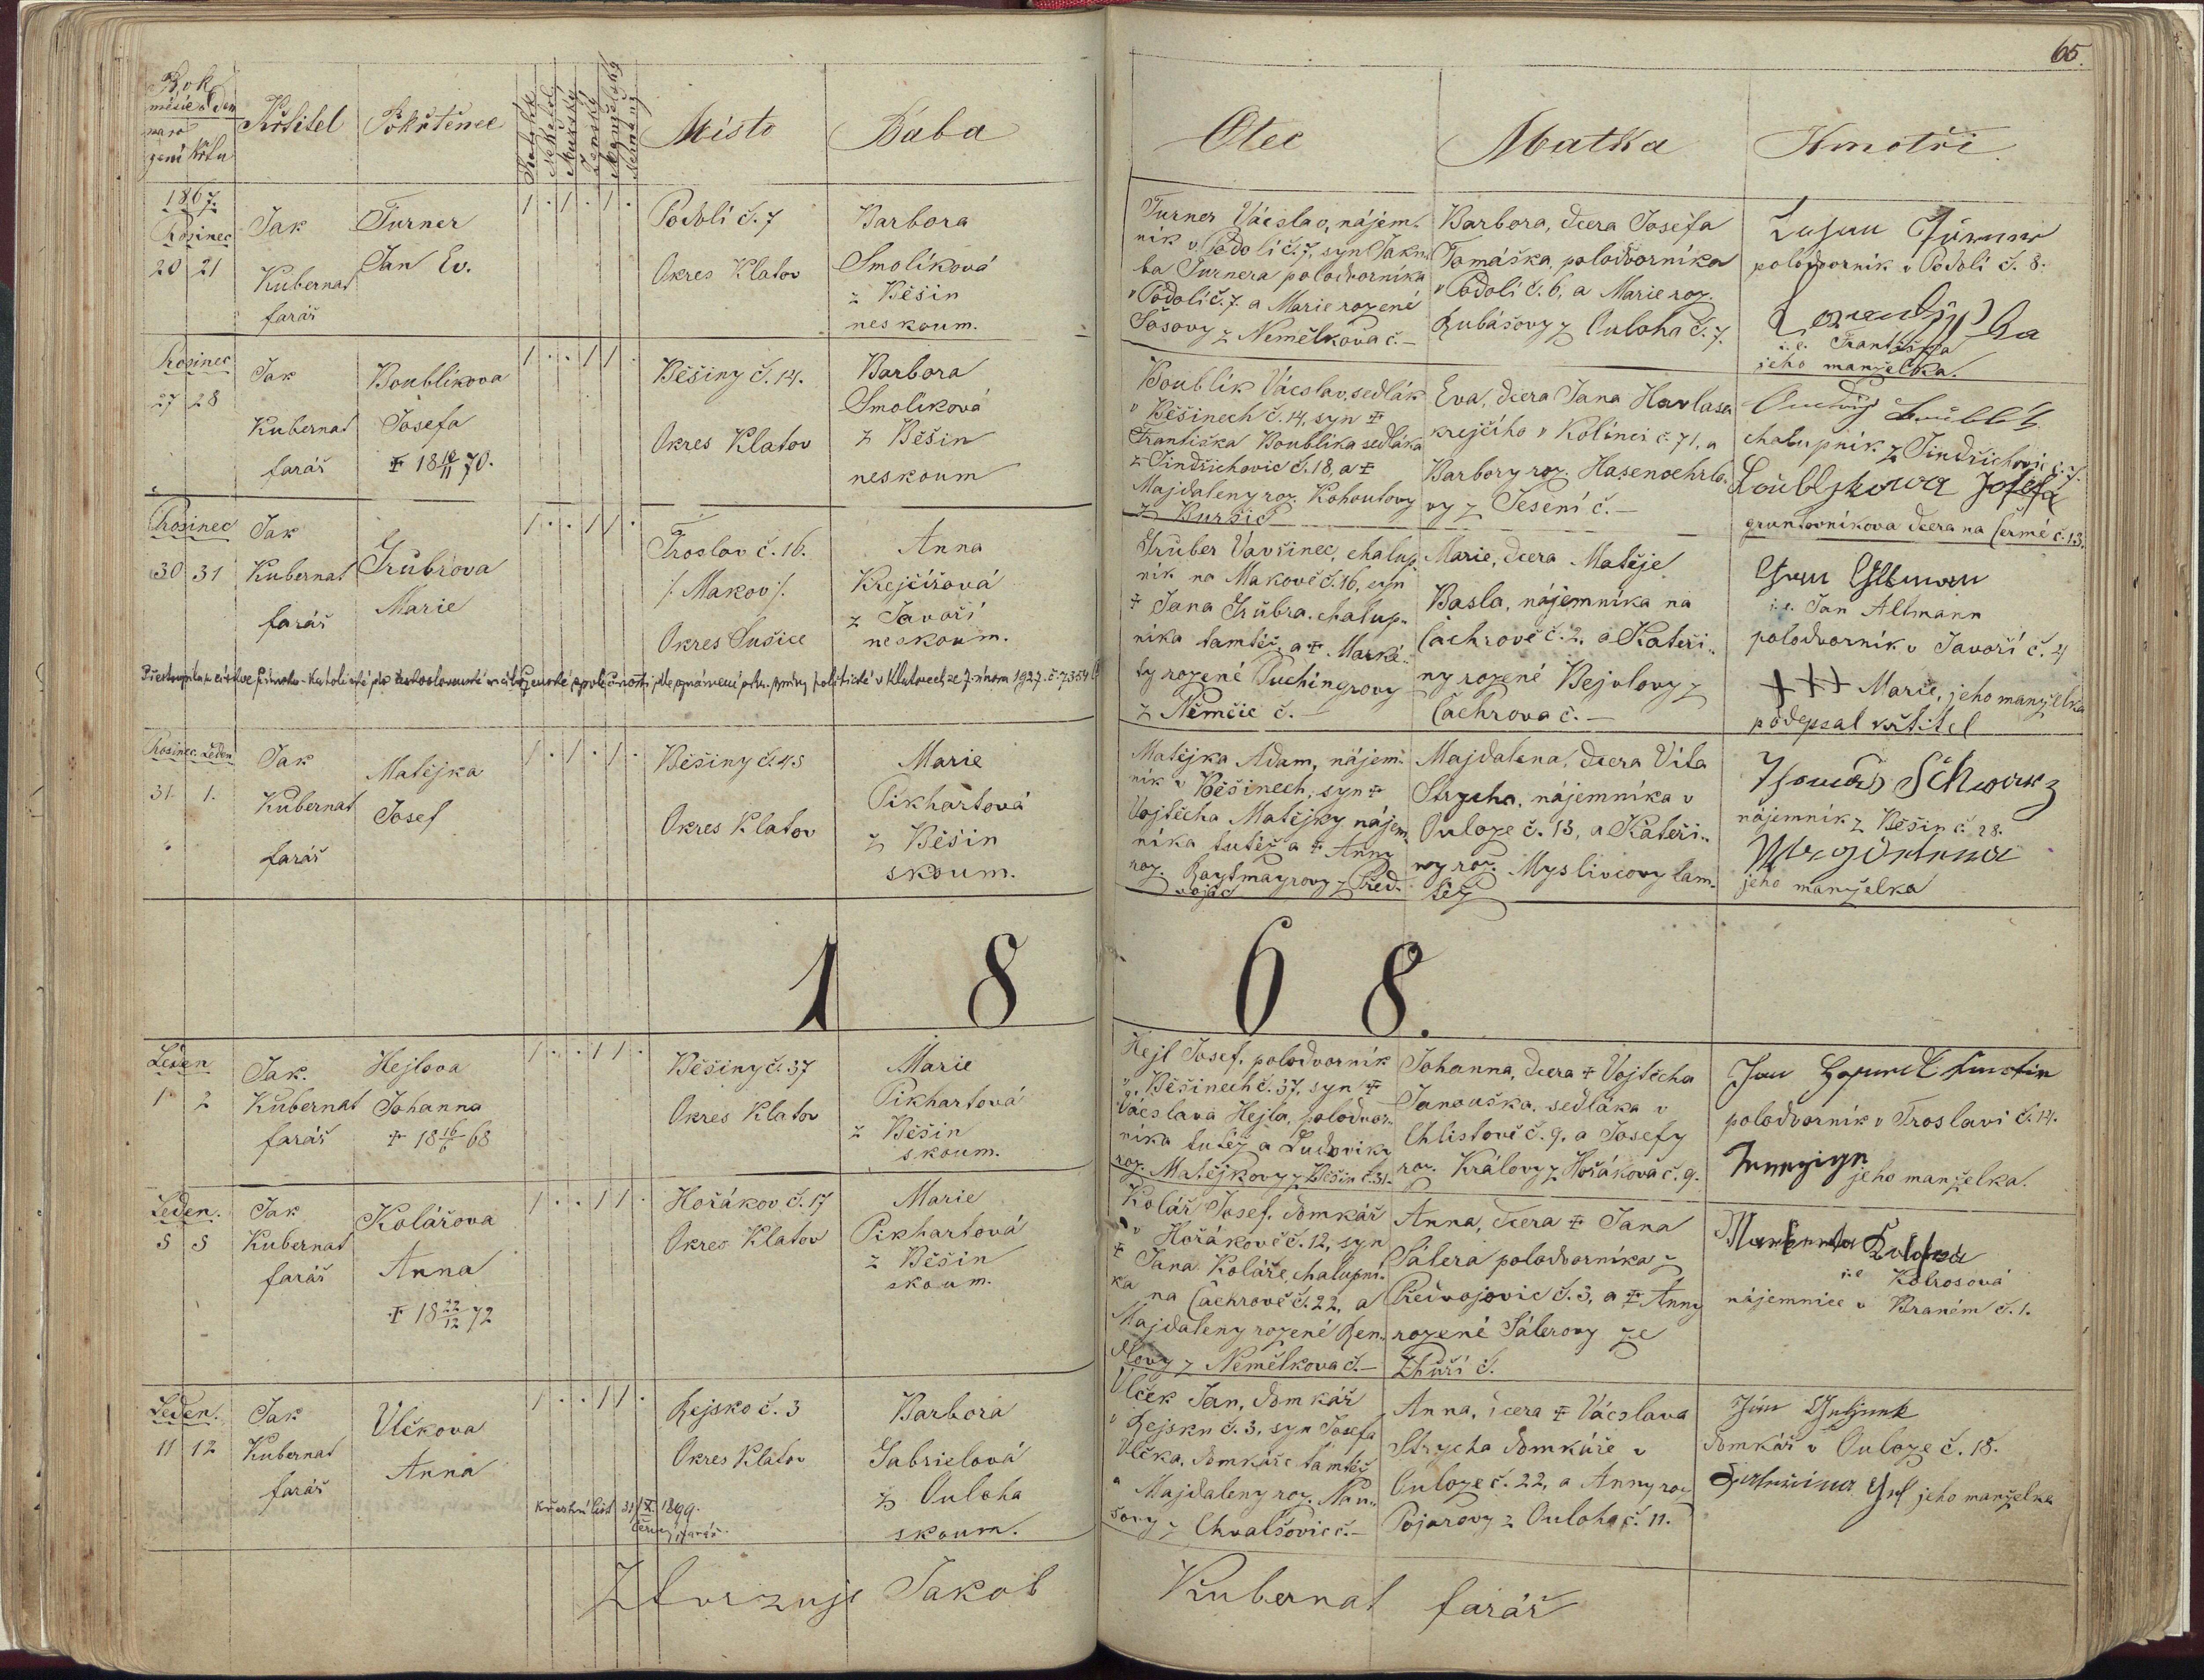 65.
Rok
měsíc a den
naro
zení křtu
Křtitel
Pokřtěnec
Katolík
Nekatol.
Mužský
Ženský
Manželský
Nemanž.
Místo
Bába
Otec
Matka
Kmotři
1867.
Prosinec
20 21
Jak
Kubernat
farář
Turner
Jan Ev.
1 . 1 . 1 .
Podolí č. 7
Okres Klatov
Barbora
Smolíková
z Běšin
neskoum.
Turner Vácslav, nájem-
ník v Podolí č. 7, syn Jaku-
ba Turnera polodvorníka
v Podolí č. 7. a Marie rozené
Sosovy z Nemělkova č. –
Barbora, dcera Josefa
Tomáška, polodvorníka
v Podolí č. 6, a Marie roz.
Kubášovy z Ouloha č. 7.
polodvorník v Podolí č. 8.
i.e. Františka
jeho manželka.
Prosinec
27 28
Jak
Kubernat
farář
Boublíkova
Josefa
✝ 18 10/11 70.
1 . . 1 1 .
Běšiny č. 14.
Okres Klatov
Barbora
Smolíková
z Běšin
neskoum
Boublík Vácslav, sedlák
v Běšinech č. 14, syn ✝
Františka Boublíka sedláka
z Jindřichovic č. 18, a ✝
Majdaleny roz. Kohoutovy
z Kuršic
Eva, dcera Jana Havlasa
krejčího v Kolinci č. 71, a
Barbory roz. Hasenoehrlo-
vy z Jesení č. –
chalupník z Jindřichovic č. 7.
Boubljkowa Josefa
gruntovníkova dcera na Čermé č. 13.
Prosinec
30 31
Jak
Kubernat
farář
Grubrova
Marie
1 . . 1 1 .
Troslav č. 16.
/: Makov :/
Okres Sušice
Anna
Krejčířová
z Javoří
neskoum.
Gruber Vavřinec, chalup-
ník na Makově č. 16, syn
✝ Jana Grubra, chalup-
níka tamtéž, a ✝ Marké-
ty rozené Puchingrovy
z Němčic č. –
Marie, dcera Matěje
Basla, nájemníka na
Čachrově č. 2, a Kateři-
ny rozené Bejvlovy z
Čachrova č. –
i.e. Jan Altmann
polodvorník v Javoří č. 4
+++ Marie, jeho manželka
podepsal křtitel
Prosinec Leden
31 1.
Jak
Kubernat
farář
Matějka
Josef
1 . 1 . 1 .
Běšiny č. 45
Okres Klatov
Marie
Pikhartová
z Běšin
skoum.
Matějka Adam, nájem-
ník v Běšinech, syn ✝
Vojtěcha Matějky nájem-
níka tutéž a ✝ Anny
roz. Raytmayrovy z Před-
vojic
Majdalena, dcera Víta
Strycha, nájemníka v
Ouloze č. 13, a Kateři-
ny roz. Myslivcovy tam-
též
Thomas Schwarz
nájemník z Běšin č. 28.
jeho manželka
1 8 6 8.
Leden
1 2
Jak.
Kubernat
farář
Hejlova
Johanna
✝ 18 16/6 68
1 . . 1 1 .
Běšiny č. 37
Okres Klatov
Marie
Pikhartová
z Běšin
skoum.
Hejl Josef, polodvorník
v Běšinech č. 37, syn ✝
Vácslava Hejla, polodvor-
níka tutéž a Ludoviky
roz. Matějkovy z Běšin č. 31.
Johanna, dcera ✝ Vojtěcha
Janouška, sedláka v
Chlistově č. 9. a Josefy
roz. Královy z Hořákova č. 9.
polodvorník v Troslavi č. 14.
jeho manželka.
Leden.
5 5
Jak
Kubernat
farář
Kolářova
Anna
✝ 18 22/12 72
1 . . 1 1 .
Hořákov č. 17
Okres Klatov
Marie
Pikhartová
z Běšin
skoum.
Kolář Josef, domkář
v Hořákově č. 12, syn
✝ Jana Koláře, chalupní-
ka na Čachrově č. 22, a
Majdaleny rozené Ren-
dlovy z Nemělkova č. –
Anna, dcera ✝ Jana
Sálera polodvorníka z
Předvojovic č. 3, a ✝ Anny
rozené Sálerovy ze
Zhůří č.
i.e. Kolrosová
nájemnice v Braném č. 1.
Leden.
11 12
Jak
Kubernat
farář
Vlčkova
Anna
1 . . 1 1 .
Rejsko č. 3
Okres Klatov
Křestní list 31/X. 1899.
Barbora
Gabrielová
z Ouloha
skoum.
Vlček Jan, domkář
v Rejsku č. 3, syn Josefa
Vlčka, domkáře tamtéž
a Majdaleny roz. Nau-
šovy z Chvalšovic č. –
Anna, dcera ✝ Vácslava
Strycha domkáře v
Ouloze č. 22, a Anny roz
Pojarovy z Ouloha č. 11.
domkář v Ouloze č. 18.
jeho manželka
Ztvrzuje Jakob Kubernat farář